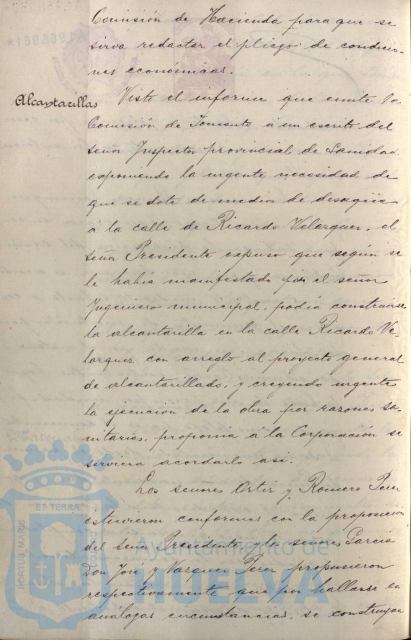 Comisión de Hacienda para que se
sirva redactar el pliego de condicio-
nes económicas.
Alcantarillas
Visto el informe que emite la
Comisión de Fomento á un escrito del
señor Inspector provincial de Sanidad
exponiendo la urgente necesidad de
que se dote de medios de desagüe
á la calle de Ricardo Velazquez, el
señor Presidente expuso que según se
le había manifestado por el señor
Ingeniero municipal, podía construirse
la alcantarilla en la calle Ricardo Ve-
lazquez con arreglo al proyecto general
de alcantarillado, y creyendo urgente
la ejecución de la obra por razones sa-
nitarias, proponía á la Corporación se
sirviera acordarlo así.
Los señores Ortiz y Romero Perez
estuvieron conformes con la proposición
del señor Presidente y los señores García
Don José y Vazquez Perez propusieron
respectivamente que por hallarse en
análogas circunstancias, se construyan
PORTUS MARIS
ET TERRAE
Ayuntamiento de
HUELVA